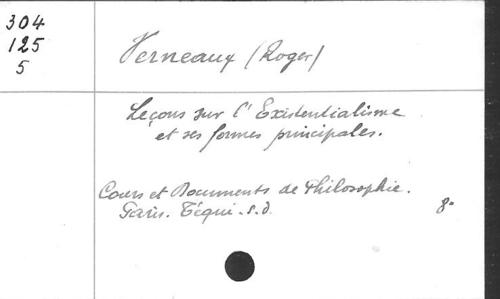 304
125
5
Verneaux (Roger)
Leçons sur l'Existentialisme
et ses formes principales.
Cours et Documents de Philosophie.
Paris. Téqui. s.d.
8°